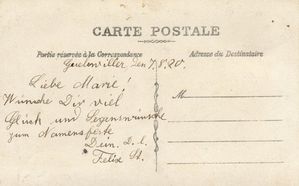 CARTE POSTALE
Partie réservée à la Correspondance
Adresse du Destinataire
Guebwiller den 7.8.20.
Liebe Marie!
Wünsche Dir viel
Glück und Segenswünsche
zum Namensfeste
Dein. D. L.
Felix St.
M